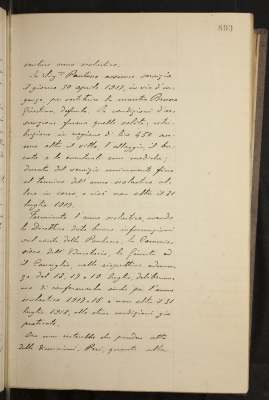 893
venturo anno scolastico.
La Sig.na Pantano assunse servizio
il giorno 20 aprile 1917, in via d'ur-
genza, per sostituire la maestra Bruna
Giustina, defunta. Le condizioni d'as-
sunzione furono quelle solite, retri-
buzione in ragione di lire 450 an-
nue oltre il vitto, l'alloggio, il bu-
cato e le eventuali cure mediche;
durata del servizio unicamente fino
al termine dell'anno scolastico al-
lora in corso, e cioè non oltre il 31
luglio 1917.
Terminato l'anno scolastico, avendo
la Direttrice date buone informazioni
sul conto della Pantano, la Commis-
sione dell'Educatorio, la Giunta ed
il Consiglio, nelle rispettive adunan-
ze del 12, 17 e 19 luglio, deliberaro-
no di confermarla anche per l'anno
scolastico 1917-18 e non oltre il 31
luglio 1918, alle stesse condizioni già
praticate.
Ora non resterebbe che prendere atto
delle dimissioni. Però, quanto alla